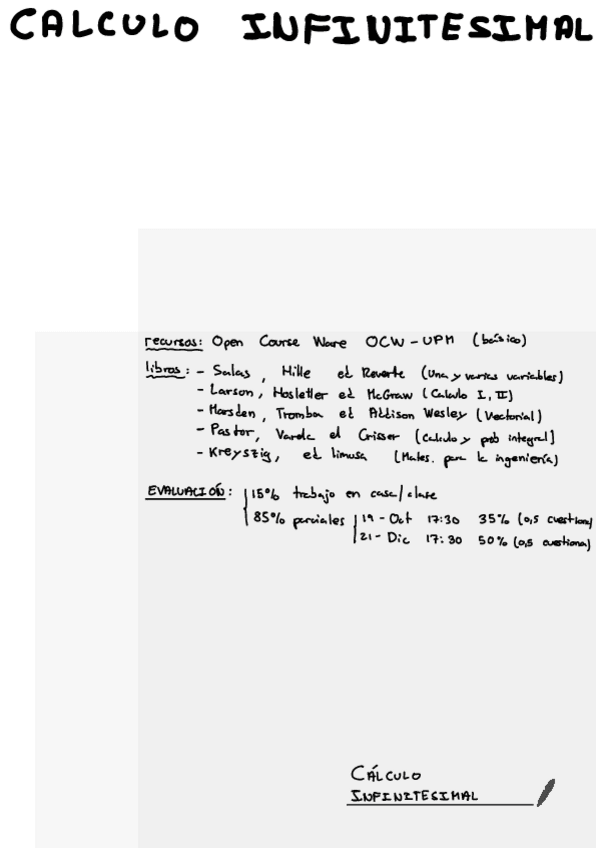 CALCULO INFINITESIMAL
recursos: Open Course Ware OCW-UPM (básico)
libros: - Salas, Hille ed Reverte (Una y varias variables)
- Larson, Hosletler ed McGraw (Calculo I, II)
- Marsden, Tromba ed Addison Wesley (Vectorial)
- Pastor, Varela ed Crisser (Calculo y prob integral)
- Kreyszig, ed limusa (Mates. para la ingeniería)
EVALUACIÓN: 15% trabajo en casa/clase
85% parciales 19-Oct 17:30 35% (0,5 cuestiona)
21-Dic 17:30 50% (0,5 cuestiona)
CÁLCULO
INFINITESIMAL